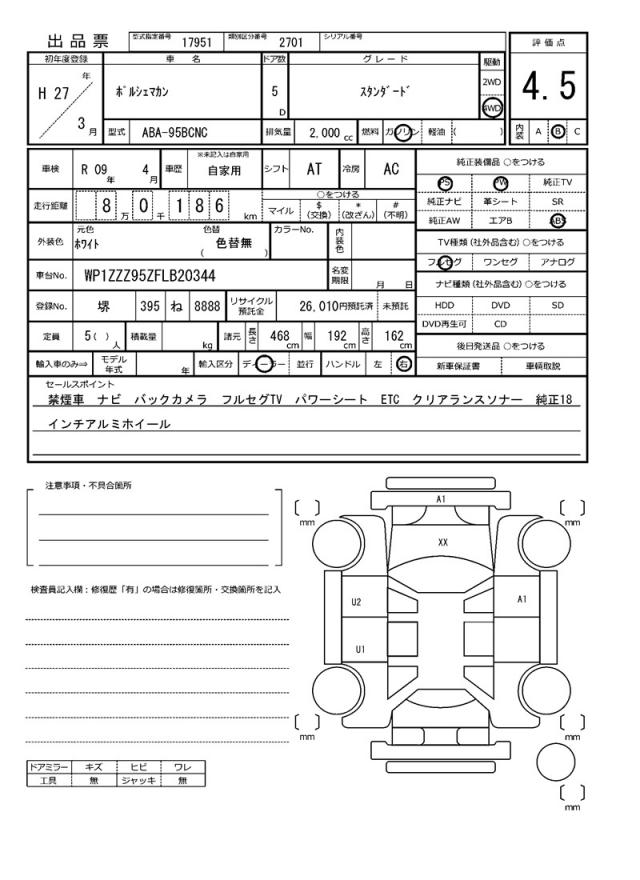 出品票 型式指定番号 17951 類別区分番号 2701 シリアル番号
初年度登録 車 名 ドア数 グレード 駆動 評価点
H 27 年 3 月 ﾎﾟﾙｼｪﾏｶﾝ 5 D ｽﾀﾝﾀﾞｰﾄﾞ 2WD 4WD 4.5
型式 ABA-95BCNC 排気量 2,000 cc 燃料 ガソリン 軽油 ( ) 内装 A B C
車検 R 09 年 4 月 車歴 ※未記入は自家用 自家用 シフト AT 冷房 AC 純正装備品 ○をつける
PS PW 純正TV
走行距離 8 万 0 千 1 8 6 km ○をつける
マイル $ (交換) * (改ざん) # (不明)
純正ナビ 革シート SR
純正AW エアB ABS
外装色 元色 ﾎﾜｲﾄ 色替 ( 色替無 ) カラーNo. 内装色
TV種類(社外品含む)○をつける
フルセグ ワンセグ アナログ
車台No. WP1ZZZ95ZFLB20344 名変期限 月 日
ナビ種類(社外品含む)○をつける
登録No. 堺 395 ね 8888 リサイクル預託金 26,010円預託済 未預託
HDD DVD SD
DVD再生可 CD
定員 5( ) 人 積載量 kg 諸元 長さ 468 cm 幅 192 cm 高さ 162 cm
後日発送品 ○をつける
輸入車のみ⇒ モデル年式 年 輸入区分 ディーラー 並行 ハンドル 左 右
新車保証書 車輌取説
セールスポイント
禁煙車 ナビ バックカメラ フルセグTV パワーシート ETC クリアランスソナー 純正18
インチアルミホイール
注意事項・不具合箇所
検査員記入欄：修復歴「有」の場合は修復箇所・交換箇所を記入
A1
mm mm
XX
U2 A1
U1
mm mm
mm
ドアミラー キズ ヒビ ワレ
工具 無 ジャッキ 無